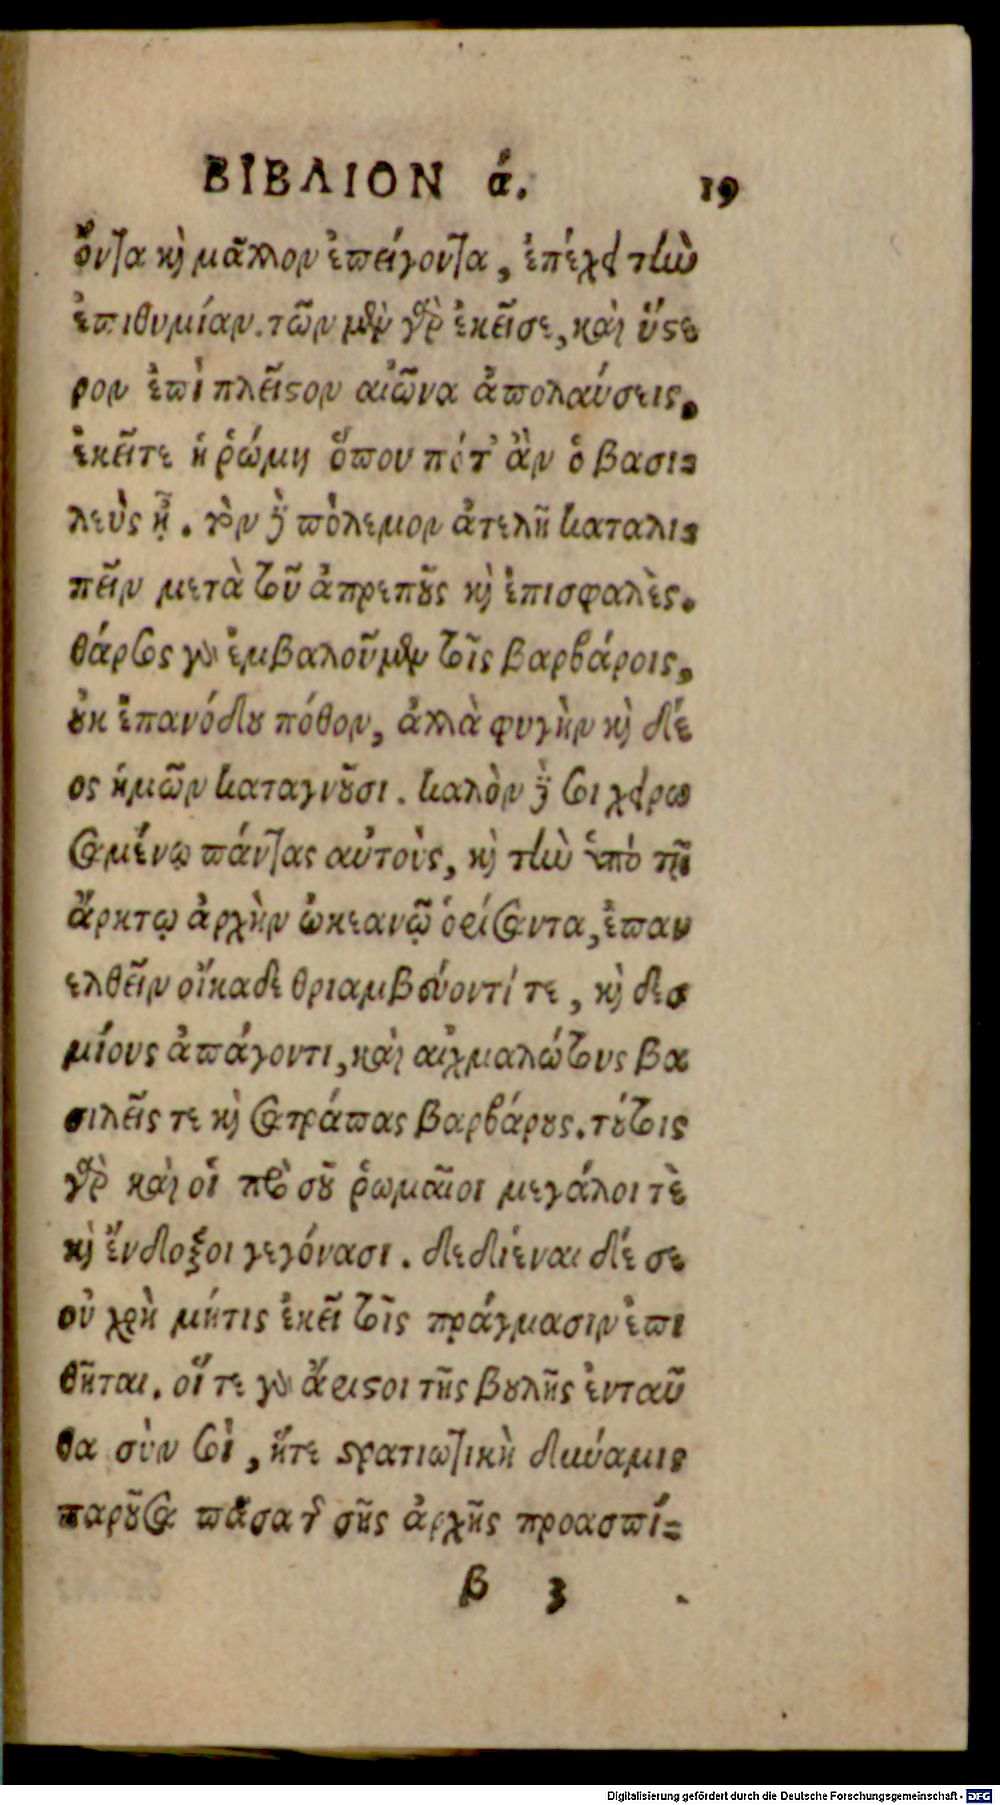 ΒΙΒΛΙΟΝ ά. 19
ὄντα κὶ μᾶλλον ἐπείγοντα, ἐπέχει τὴν
ἐπιθυμίαν. τῶν μὲν γὰρ ἐκεῖσε, καὶ ὕστε
ρον ἐπὶ πλεῖστον αἰῶνα ἀπολαύσεις.
ἐκεῖ τε ἡ ῥώμη ὅπου πότ' ἂν ὁ βασι-
λεὺς ᾖ. τὸν δὲ πόλεμον ἀτελῆ καταλι-
πεῖν μετὰ τοῦ ἀπρεποῦς κὶ ἐπισφαλὲς.
θάρσος γὰρ ἐμβαλοῦμεν τοῖς βαρβάροις,
οὐκ ἐπανόδου πόθον, ἀλλὰ φυγὴν κὶ δέ
ος ἡμῶν καταγνοῦσι. καλὸν δέ σοι χειρω
σαμένῳ πάντας αὐτοὺς, κὶ τὴν ὑπὸ τῇ
ἄρκτῳ ἀρχὴν ὠκεανῷ ὁρίσαντα, ἐπαν
ελθεῖν οἴκαδε θριαμβεύοντί τε, κὶ δεσ
μίους ἀπάγοντι, καὶ αἰχμαλώτους βα
σιλεῖς τε κὶ σατράπας βαρβάρους. τούτοις
γὰρ καὶ οἱ πρὸ σοῦ ῥωμαῖοι μεγάλοι τὲ
κὶ ἔνδοξοι γεγόνασι. δεδιέναι δέ σε
οὐ χρὴ μήτις ἐκεῖ τοῖς πράγμασιν ἐπι
θῆται. οἵ τε γὰρ ἄριστοι τῆς βουλῆς ἐνταῦ
θα σὺν σοὶ, ἥτε στρατιωτικὴ δύναμις
παροῦσα πᾶσα τῆς σῆς ἀρχῆς προασπί-
β 3
Digitalisierung gefördert durch die Deutsche Forschungsgemeinschaft - DFG